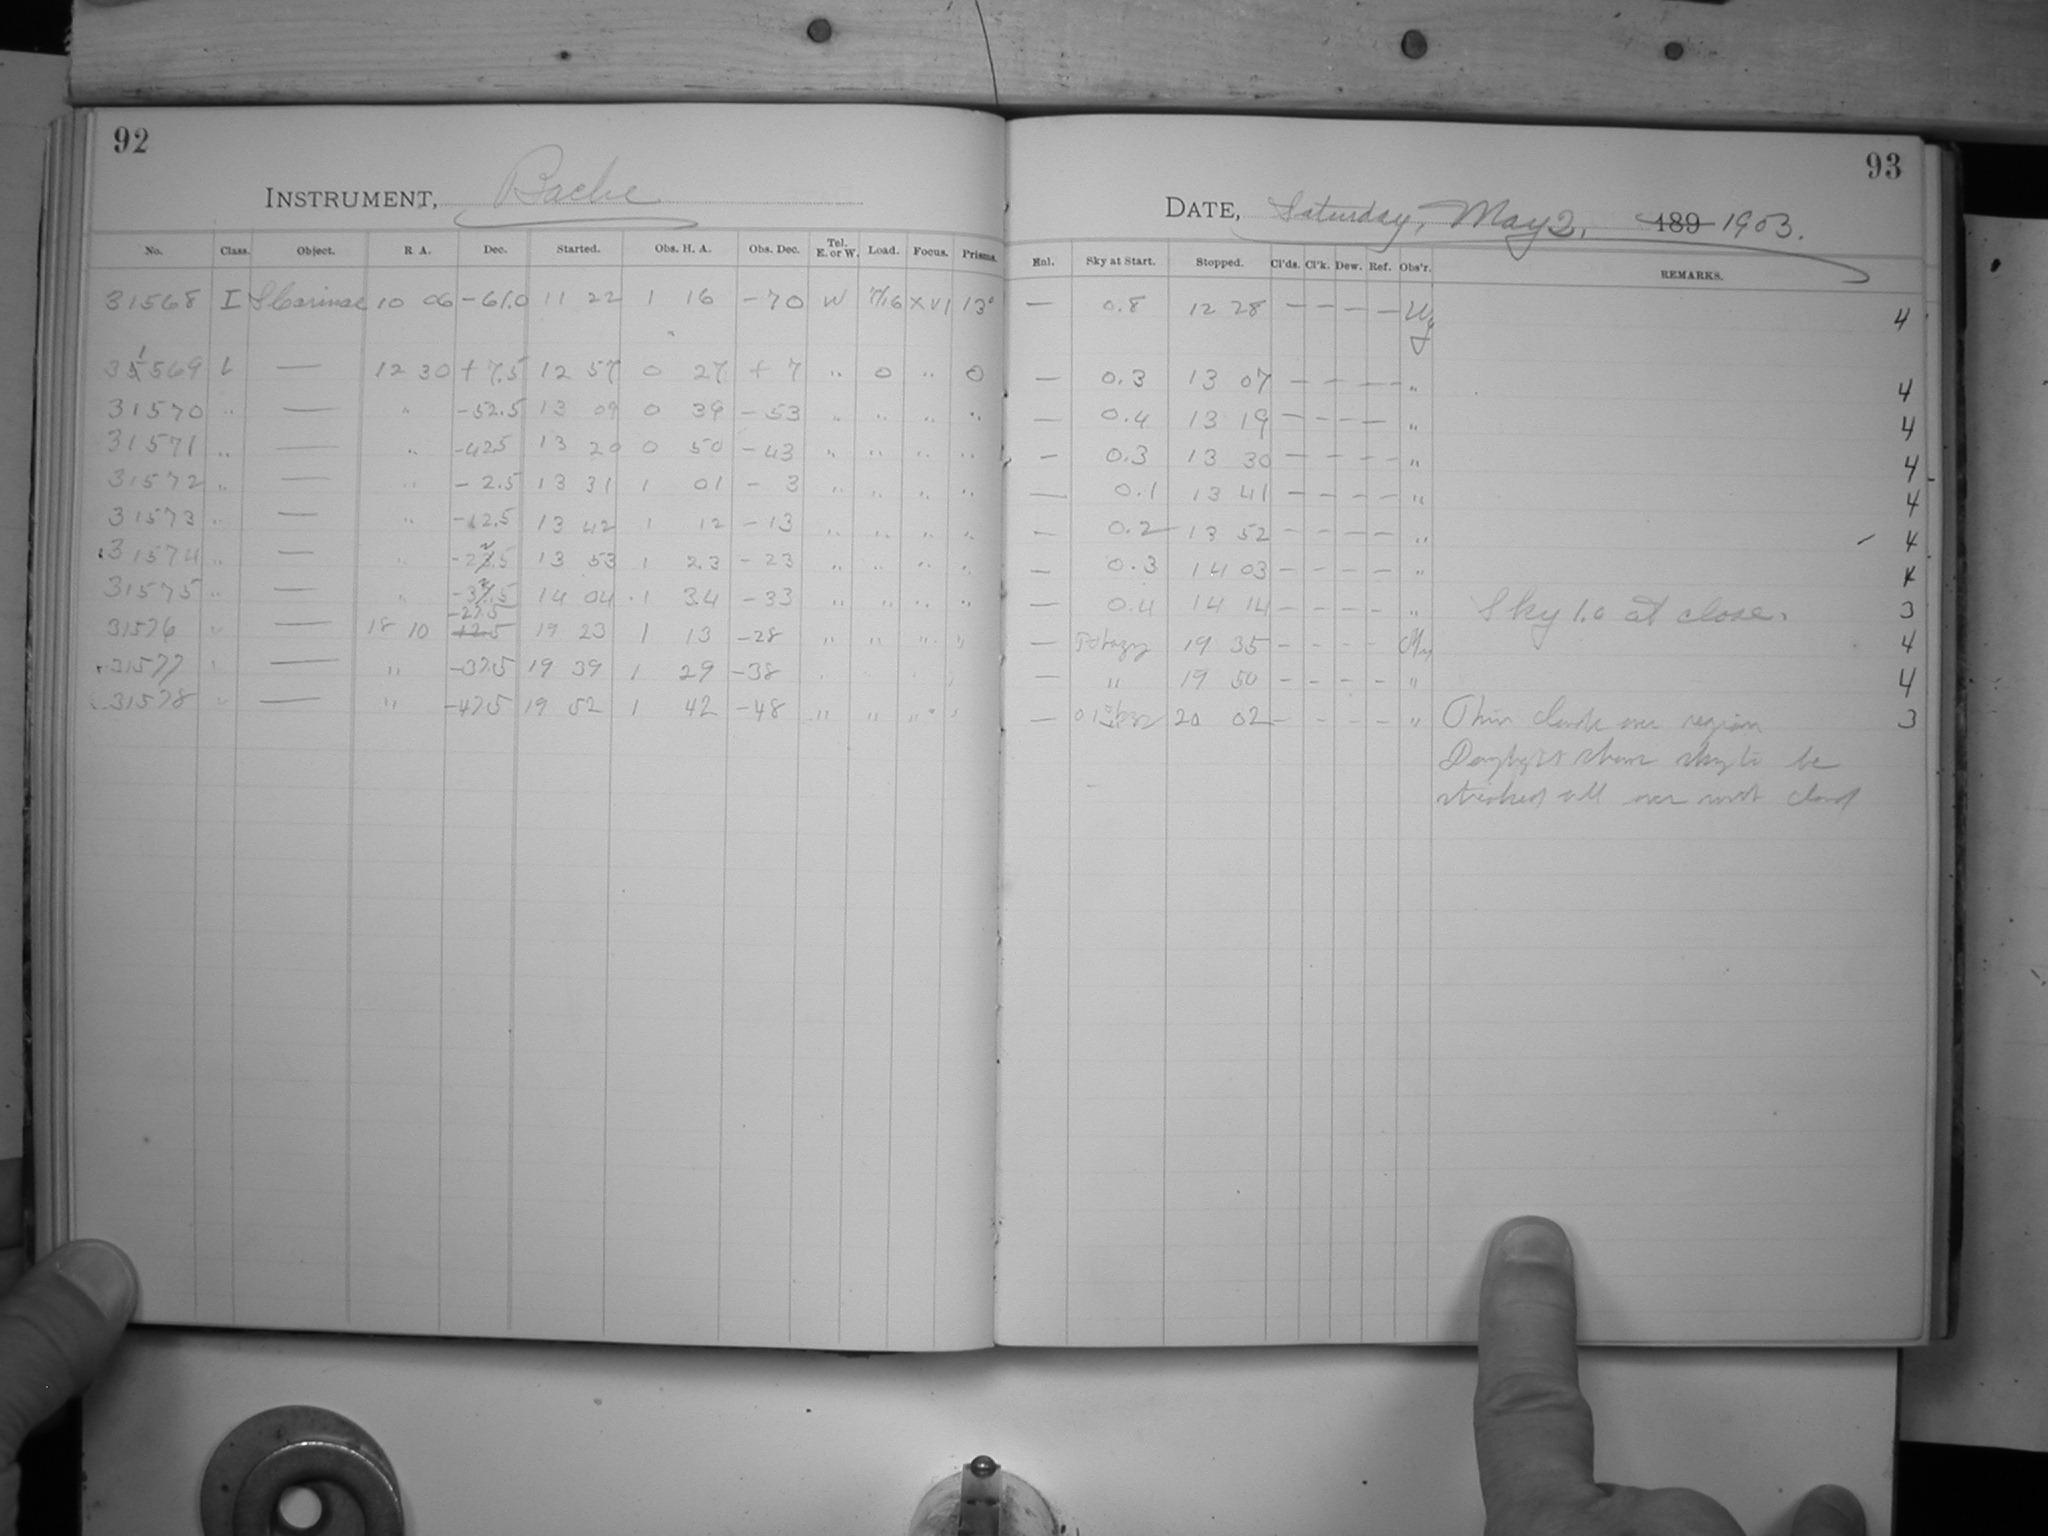 92
INSTRUMENT, Bache
No. Class. Object. R. A. Dec. Started. Obs. H. A. Obs. Dec. Tel. E. or W. Load. Focus. Prisms.
31568 I S Carinae 10 06 -61.0 11 22 1 16 -70 W 7/16 XVI 13°
31569 L — 12 30 +7.5 12 57 0 27 +7 " 0 " 0
31570 " — " -52.5 13 09 0 39 -53 " " " "
31571 " — " -42.5 13 20 0 50 -43 " " " "
31572 " — " -2.5 13 31 1 01 -3 " " " "
31573 " — " -12.5 13 42 1 12 -13 " " " "
31574 " — " -22.5 13 53 1 23 -23 " " " "
31575 " — " -32.5 14 04 1 34 -33 " " " "
31576 " — 18 10 -27.5 19 23 1 13 -28 " " " "
31577 " — " -37.5 19 39 1 29 -38 " " " "
31578 " — " -47.5 19 52 1 42 -48 " " " "
93
DATE, Saturday, May 2, 189 1903.
Enl. Sky at Start. Stopped. Cl'ds. Cl'k. Dew. Ref. Obs'r. REMARKS.
— 0.8 12 28 — — — — Wy 4
— 0.3 13 07 — — — — " 4
— 0.4 13 19 — — — — " 4
— 0.3 13 30 — — — — " 4
— 0.1 13 41 — — — — " 4
— 0.2 13 52 — — — — " 4
— 0.3 14 03 — — — — "
— 0.4 14 14 — — — — " Sky 1.0 at close. 3
— 19 35 — — — — 4
— " 19 50 — — — — " 4
— 20 02 — — — — " Thin clouds over region 3
Daylight shows sky to be
streaked all over with cloud